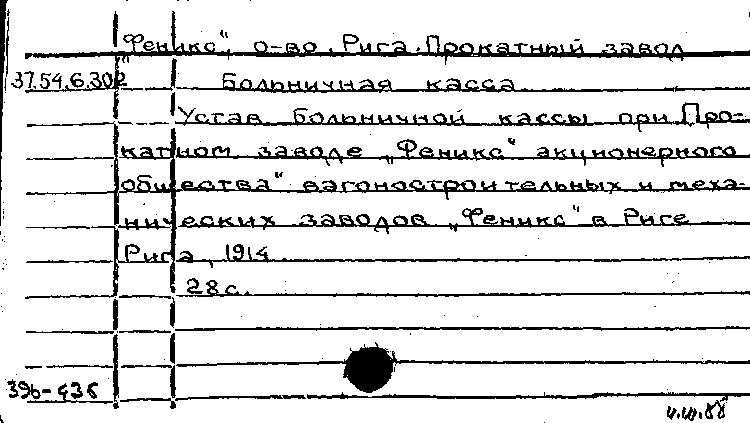 "Феникс", о-во. Рига. Прокатный завод
37.54.6.302 Больничная касса
Устав больничной кассы при Про-
катном заводе „Феникс“ акционерного
общества“ вагоностроительных и меха-
нических заводов „Феникс“ в Риге
Рига, 1914
28 с.